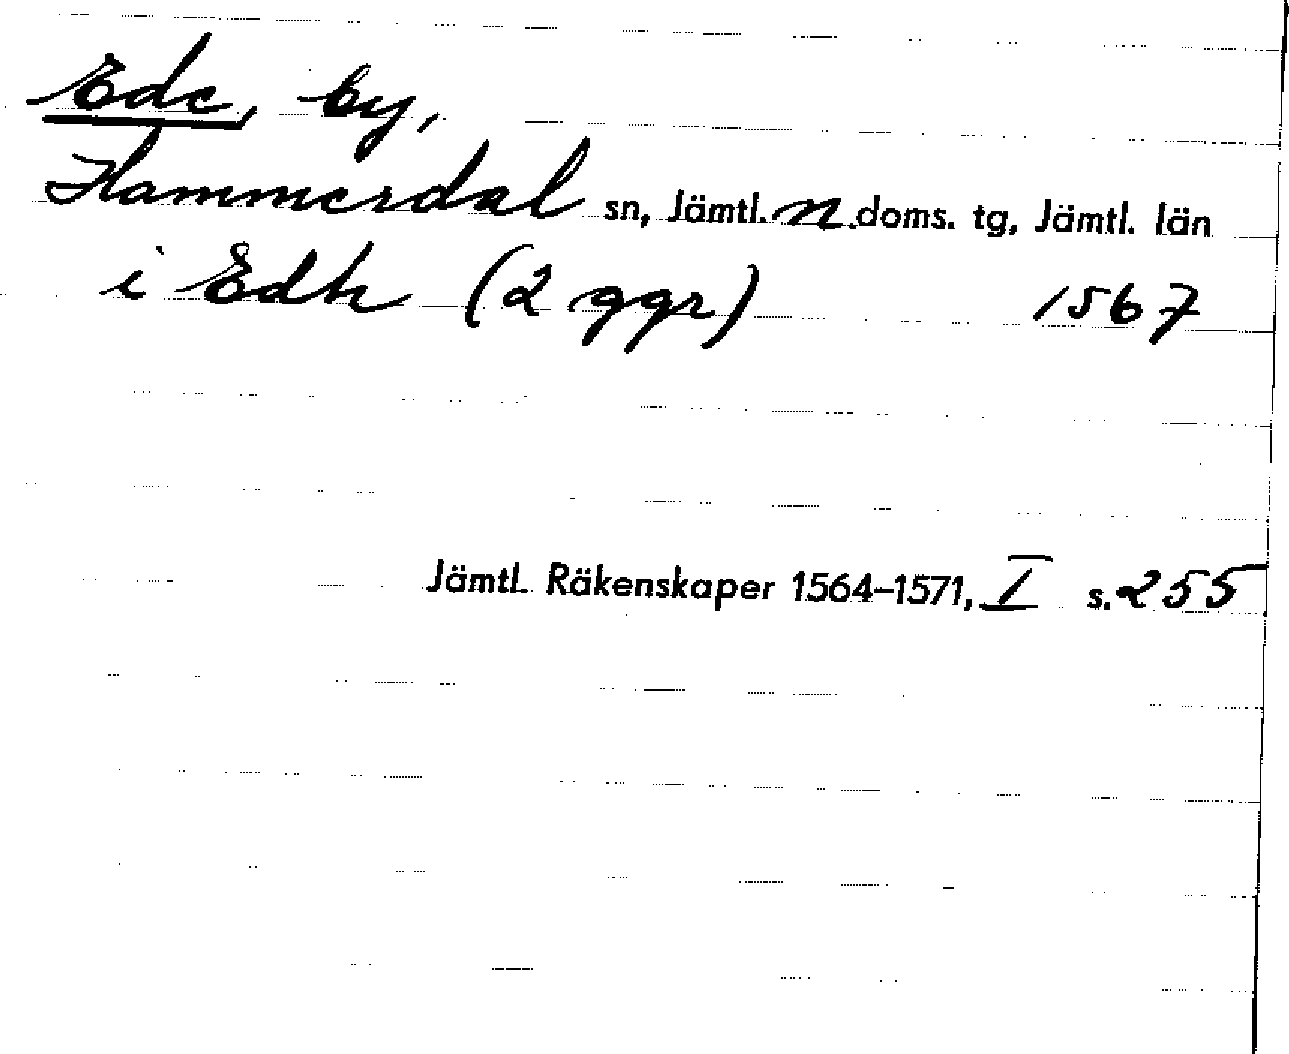 Ede, by,
Hammerdal sn, Jämtl. n. doms. tg, Jämtl. län
i Edh (2 ggr) 1567
Jämtl. Räkenskaper 1564–1571, I s. 255